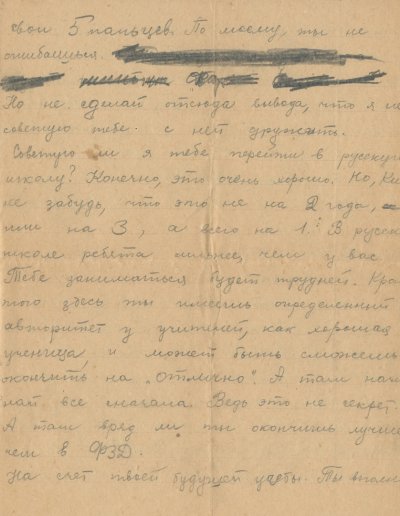 свои 5 пальцев. По моему, ты не
ошибаешься.
Но не сделай отсюда вывода, что я не
советую тебе с ней дружить.
Советую ли я тебе перейти в русскую
школу? Конечно, это очень хорошо. Но,
не забудь, что это не на 2 года,
или на 3, а всего на 1. В русск
школе ребята сильнее, чем у вас
Тебе заниматься будет трудней. Кро
того здесь ты имеешь определенный
авторитет у учителей, как хорошая
ученица и может быть сможешь
окончить на „отлично“. А там нач
най все сначала. Ведь это не секрет.
А там вряд ли ты окончишь лучше
чем в ФЗД.
На счет твоей будущей учебы. Ты